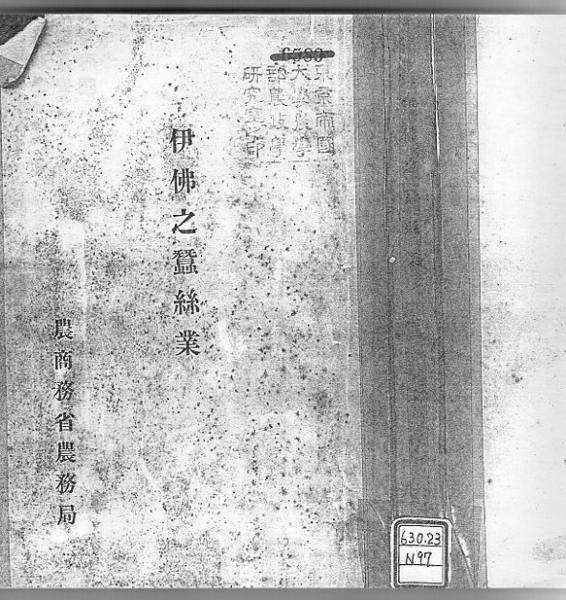 東京帝國
大學農學
部農政學
研究室印
伊佛之蠶絲業
農商務省農務局
630.23
N97